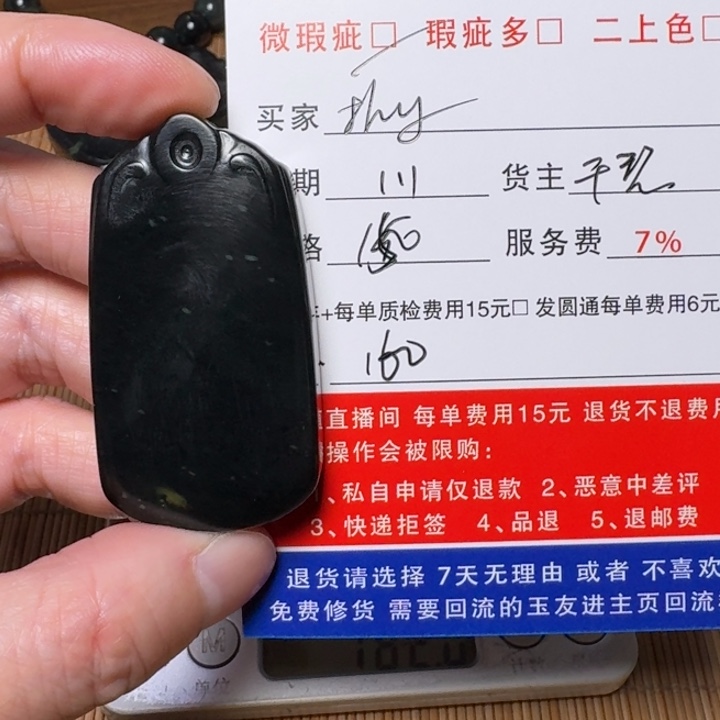 微瑕疵□ 瑕疵多□ 二上色□
买家 shy
期 111 货主
格 服务费 7%
+每单质检费用15元□ 发圆通每单费用6元
160
直播间 每单费用15元 退货不退费用
操作会被限购：
1、私自申请仅退款 2、恶意中差评
3、快递拒签 4、品退 5、退邮费
退货请选择 7天无理由 或者 不喜欢
免费修货 需要回流的玉友进主页回流
M